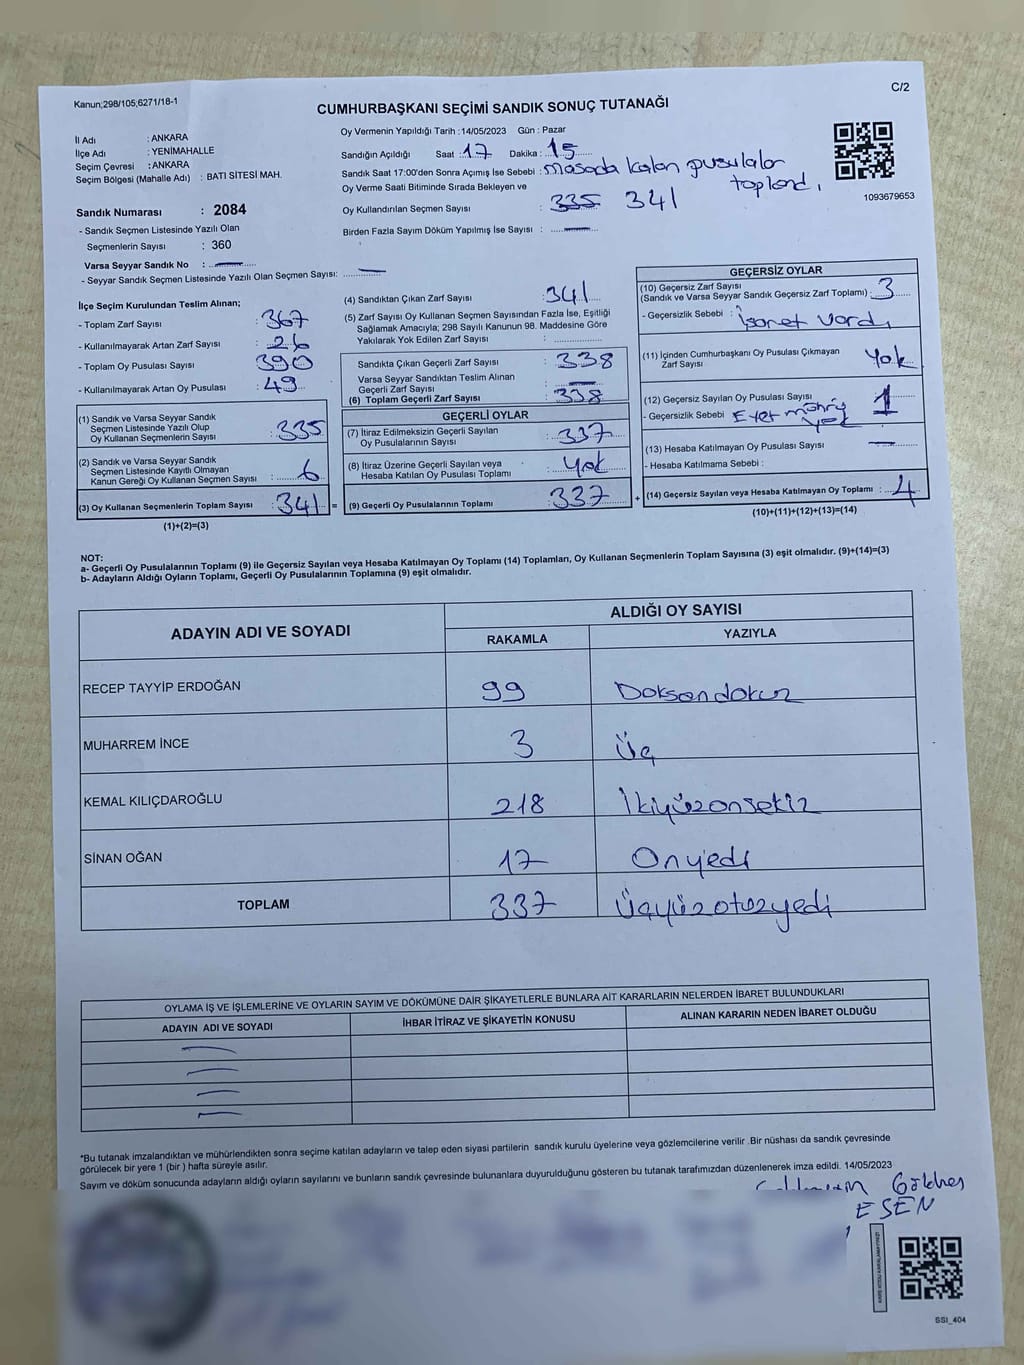 Kanun;298/105;6271/18-1
C/2
CUMHURBAŞKANI SEÇİMİ SANDIK SONUÇ TUTANAĞI
İl Adı : ANKARA
İlçe Adı : YENİMAHALLE
Seçim Çevresi : ANKARA
Seçim Bölgesi (Mahalle Adı) : BATI SİTESİ MAH.
Sandık Numarası : 2084
- Sandık Seçmen Listesinde Yazılı Olan
Seçmenlerin Sayısı : 360
Varsa Seyyar Sandık No :
- Seyyar Sandık Seçmen Listesinde Yazılı Olan Seçmen Sayısı:
Oy Vermenin Yapıldığı Tarih : 14/05/2023 Gün : Pazar
Sandığın Açıldığı Saat : 17 Dakika : 15
Sandık Saat 17:00'den Sonra Açımış İse Sebebi : masada kalan pusulalar
toplandı.
Oy Verme Saati Bitiminde Sırada Bekleyen ve
Oy Kullandırılan Seçmen Sayısı : 335 341
Birden Fazla Sayım Döküm Yapılmış İse Sayısı :
1093679653
İlçe Seçim Kurulundan Teslim Alınan;
- Toplam Zarf Sayısı : 367
- Kullanılmayarak Artan Zarf Sayısı : 26
- Toplam Oy Pusulası Sayısı : 390
- Kullanılmayarak Artan Oy Pusulası : 49
(1) Sandık ve Varsa Seyyar Sandık
Seçmen Listesinde Yazılı Olup
Oy Kullanan Seçmenlerin Sayısı : 335
(2) Sandık ve Varsa Seyyar Sandık
Seçmen Listesinde Kayıtlı Olmayan
Kanun Gereği Oy Kullanan Seçmen Sayısı : 6
(3) Oy Kullanan Seçmenlerin Toplam Sayısı : 341 =
(1)+(2)=(3)
(4) Sandıktan Çıkan Zarf Sayısı : 341
(5) Zarf Sayısı Oy Kullanan Seçmen Sayısından Fazla İse, Eşitliği
Sağlamak Amacıyla; 298 Sayılı Kanunun 98. Maddesine Göre
Yakılarak Yok Edilen Zarf Sayısı :
Sandıkta Çıkan Geçerli Zarf Sayısı : 338
Varsa Seyyar Sandıktan Teslim Alınan
Geçerli Zarf Sayısı :
(6) Toplam Geçerli Zarf Sayısı : 338
GEÇERLİ OYLAR
(7) İtiraz Edilmeksizin Geçerli Sayılan
Oy Pusulalarının Sayısı : 337
(8) İtiraz Üzerine Geçerli Sayılan veya
Hesaba Katılan Oy Pusulası Toplamı : Yok
(9) Geçerli Oy Pusulalarının Toplamı : 337 +
GEÇERSİZ OYLAR
(10) Geçersiz Zarf Sayısı
(Sandık ve Varsa Seyyar Sandık Geçersiz Zarf Toplamı) : 3
- Geçersizlik Sebebi : İşaret vardı
(11) İçinden Cumhurbaşkanı Oy Pusulası Çıkmayan
Zarf Sayısı : Yok
(12) Geçersiz Sayılan Oy Pusulası Sayısı : 1
- Geçersizlik Sebebi : Evet mührü yok
(13) Hesaba Katılmayan Oy Pusulası Sayısı
- Hesaba Katılmama Sebebi :
(14) Geçersiz Sayılan veya Hesaba Katılmayan Oy Toplamı : 4
(10)+(11)+(12)+(13)=(14)
NOT:
a- Geçerli Oy Pusulalarının Toplamı (9) ile Geçersiz Sayılan veya Hesaba Katılmayan Oy Toplamı (14) Toplamları, Oy Kullanan Seçmenlerin Toplam Sayısına (3) eşit olmalıdır. (9)+(14)=(3)
b- Adayların Aldığı Oyların Toplamı, Geçerli Oy Pusulalarının Toplamına (9) eşit olmalıdır.
ADAYIN ADI VE SOYADI
ALDIĞI OY SAYISI
RAKAMLA YAZIYLA
RECEP TAYYİP ERDOĞAN 99 Doksandokuz
MUHARREM İNCE 3 Üç
KEMAL KILIÇDAROĞLU 218 İkiyüzonsekiz
SİNAN OĞAN 17 Onyedi
TOPLAM 337 Üçyüzotuzyedi
OYLAMA İŞ VE İŞLEMLERİNE VE OYLARIN SAYIM VE DÖKÜMÜNE DAİR ŞİKAYETLERLE BUNLARA AİT KARARLARIN NELERDEN İBARET BULUNDUKLARI
ADAYIN ADI VE SOYADI İHBAR İTİRAZ VE ŞİKAYETİN KONUSU ALINAN KARARIN NEDEN İBARET OLDUĞU
*Bu tutanak imzalandıktan ve mühürlendikten sonra seçime katılan adayların ve talep eden siyasi partilerin sandık kurulu üyelerine veya gözlemcilerine verilir .Bir nüshası da sandık çevresinde
görülecek bir yere 1 (bir ) hafta süreyle asılır.
Sayım ve döküm sonucunda adayların aldığı oyların sayılarını ve bunların sandık çevresinde bulunanlara duyurulduğunu gösteren bu tutanak tarafımızdan düzenlenerek imza edildi. 14/05/2023
Gökhan
ESEN
SSI_404